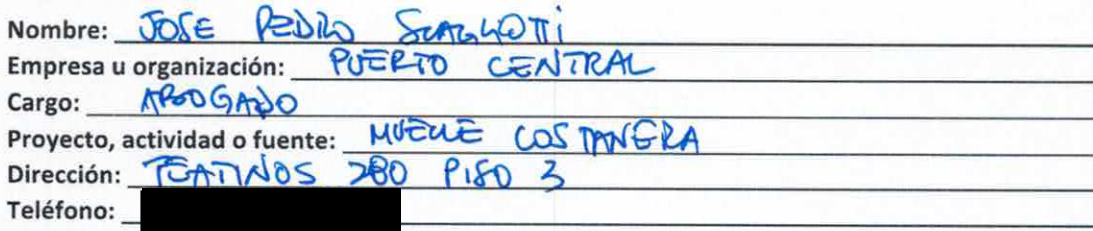 Nombre: JOSE PEDRO SCAGLIOTTI
Empresa u organización: PUERTO CENTRAL
Cargo: ABOGADO
Proyecto, actividad o fuente: MUELLE COSTANERA
Dirección: TEATINOS 280 PISO 3
Teléfono: